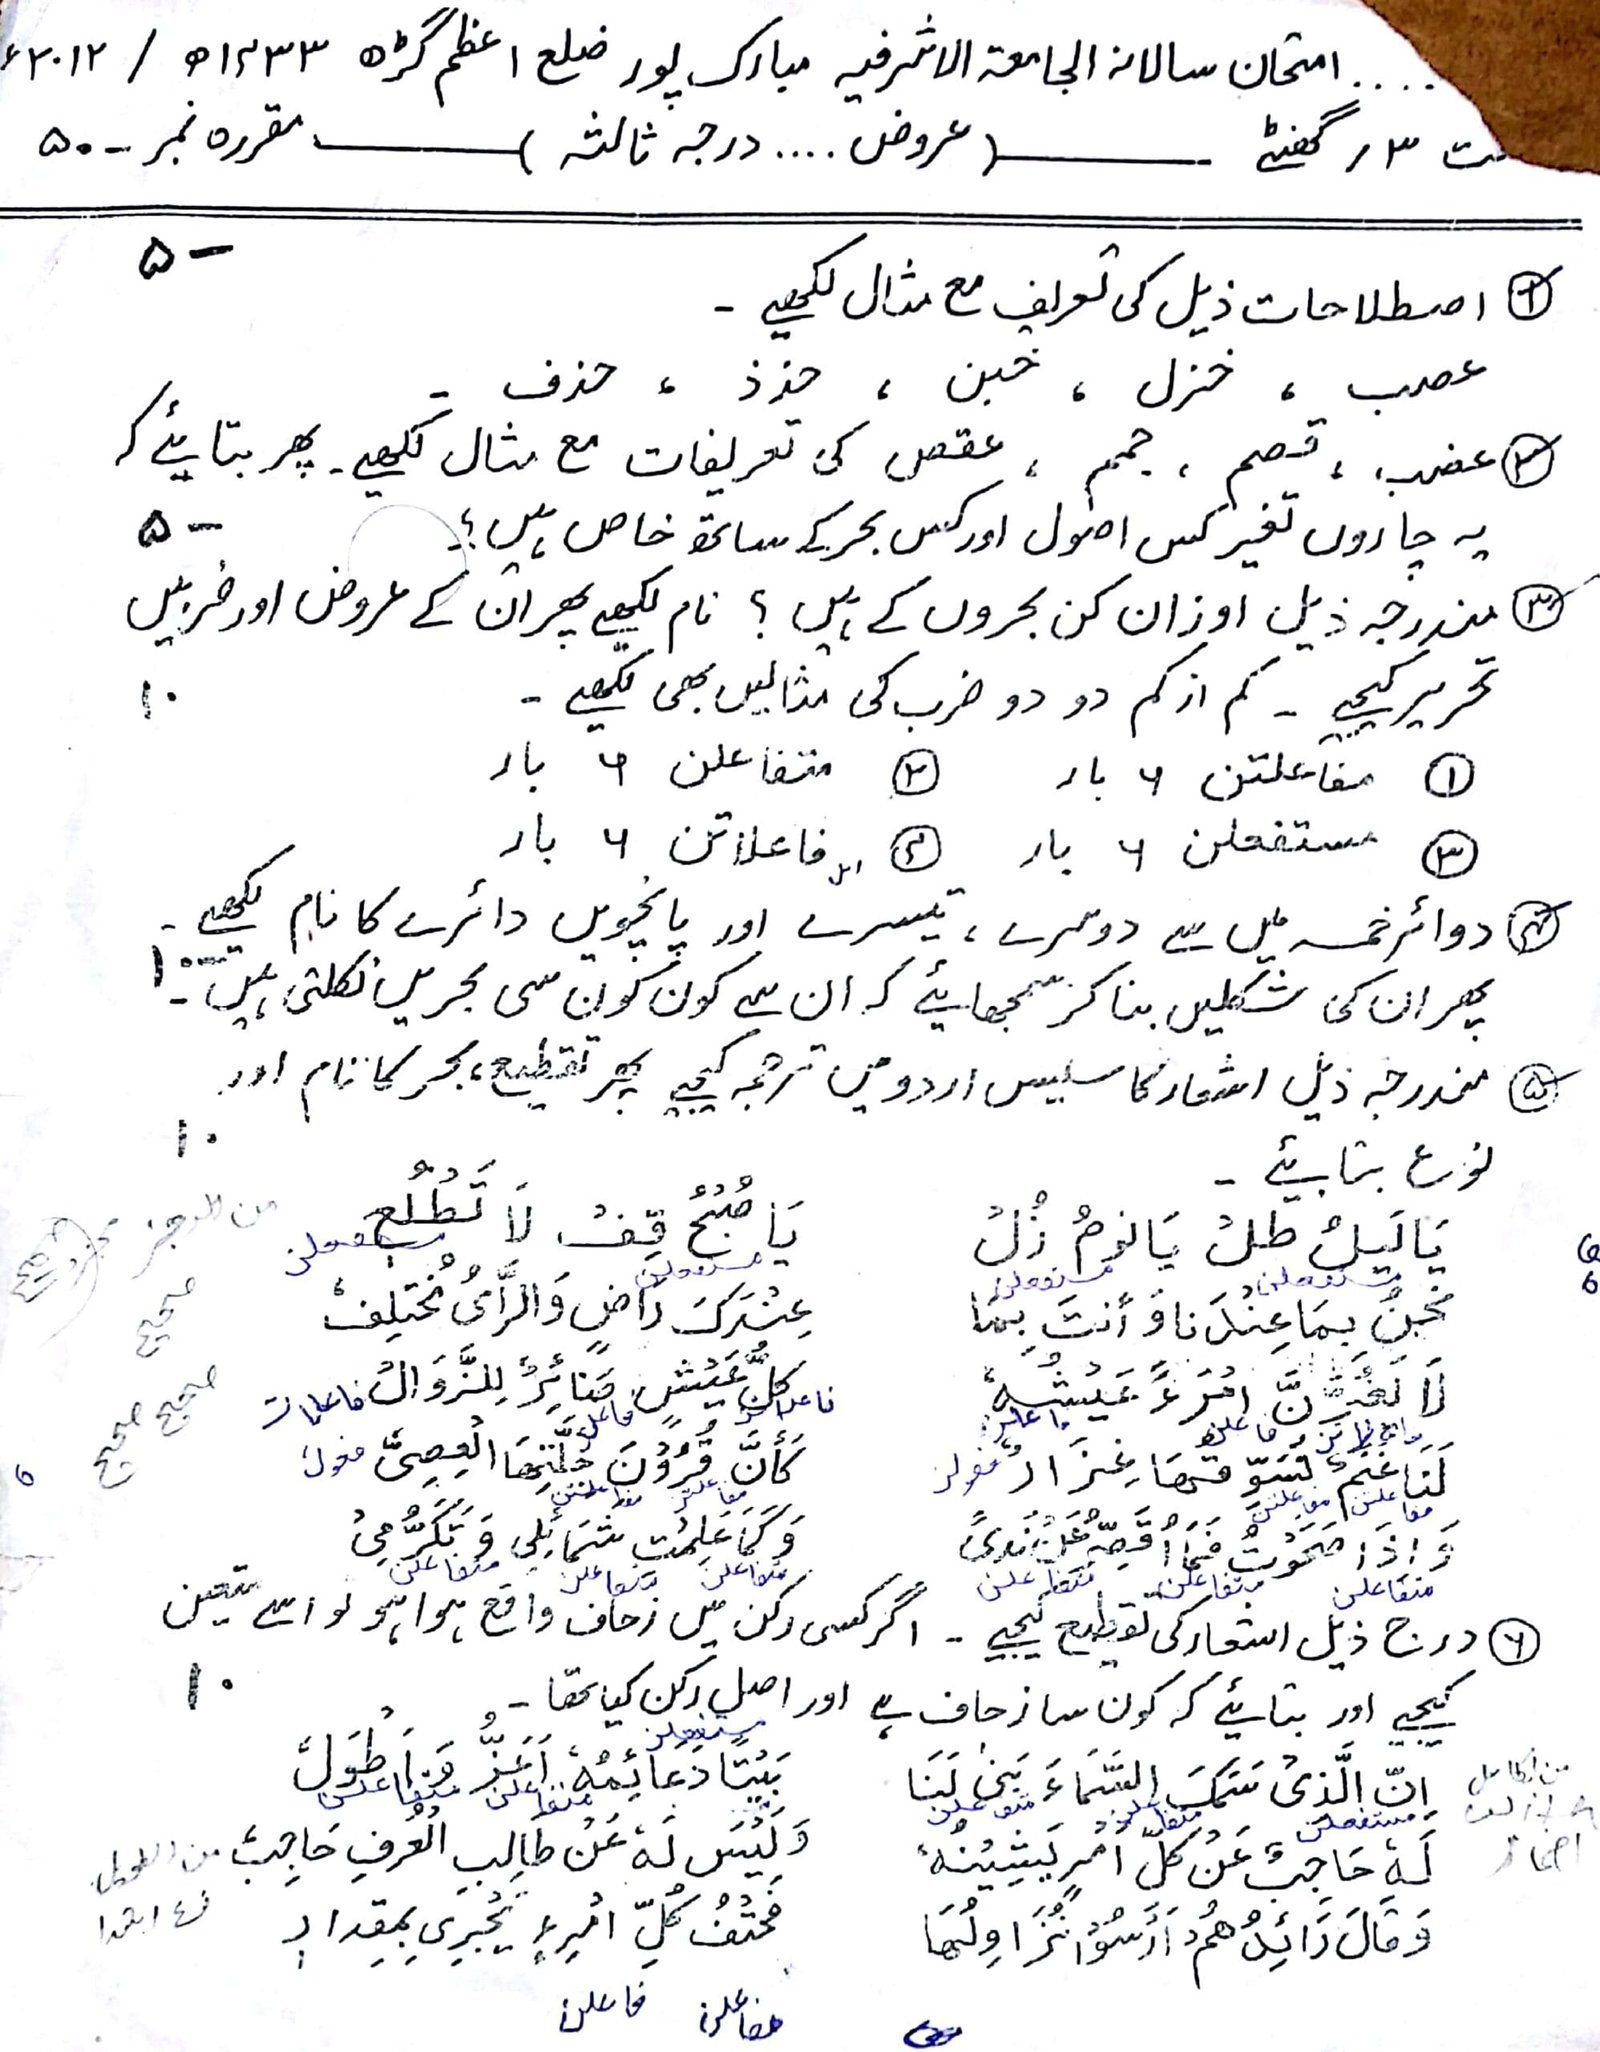 .... امتحان سالانہ الجامعۃ الاشرفیہ مبارک پور ضلع اعظم گڑھ ۱۴۳۳ھ / ۲۰۱۲ء
ت ۳ ر گھنٹے ——— (عروض .... درجہ ثالثہ) ——— مقررہ نمبر - ۵۰
① اصطلاحات ذیل کی تعریف مع مثال لکھیے - ۵
عصب ، خزل ، خبن ، حذذ ، حذف -
② عضب ، قصم ، جمم ، عقص کی تعریفات مع مثال لکھیے - پھر بتایئے کہ
یہ چاروں تغیر کس اصول اور کس بحر کے ساتھ خاص ہیں ؟ - ۵
③ مندرجہ ذیل اوزان کن بحروں کے ہیں ؟ نام لکھیے پھر ان کے عروض اور ضربیں
تحریر کیجیے - کم از کم دو دو ضرب کی مثالیں بھی لکھیے - ۱۰
① مفاعلتن ۶ بار ② متفاعلن ۶ بار
③ مستفعلن ۶ بار ④ فاعلاتن ۶ بار
④ دوائر خمسہ میں سے دوسرے ، تیسرے اور پانچویں دائرے کا نام لکھیے -
پھر ان کی شکلیں بنا کر سمجھایئے کہ ان سے کون کون سی بحریں نکلتی ہیں - ۱۰
⑤ مندرجہ ذیل اشعار کا سلیس اردو میں ترجمہ کیجیے پھر تقطیع ، بحر کا نام اور
نوع بتایئے - ۱۰
یَا لَیلُ طُلْ یَا نَومُ زُلْ یَا صُبْحُ قِفْ لَا تَطْلُعِ
من الرجز
مستفعلن مستفعلن مستفعلن مستفعلن
نَحْنُ بِمَا عِنْدَنَا وَأَنْتَ بِمَا عِنْدَكَ رَاضٍ وَالرَّأْیُ مُخْتَلِفٌ
صحیح
لَا یَغُرَّنَّ امْرَءً عَیْشُهٗ کُلُّ عَیْشٍ صَائِرٌ لِلزَّوَالْ
فاعلاتن فاعلن فاعلن فاعلاتن فاعلن فاعلات
صحیح صحیح
لَنَا غَنَمٌ نُسَوِّقُهَا غِزَارٌ كَأَنَّ قُرُوْنَ جِلَّتِهَا الْعِصِیُّ
مفاعلتن مفاعلتن فعولن مفاعلتن مفاعلتن فعولن
وَاِذَا صَحَوْتُ فَمَا أُقَصِّرُ عَنْ نَدًی وَكَمَا عَلِمْتِ شَمَائِلِی وَتَكَرُّمِیْ
متفاعلن متفاعلن متفاعلن متفاعلن متفاعلن متفاعلن
⑥ درج ذیل اشعار کی تقطیع کیجیے - اگر کسی رکن میں زحاف واقع ہوا ہو تو اسے متعین
کیجیے اور بتایئے کہ کون سا زحاف ہے اور اصل رکن کیا تھا - ۱۰
اِنَّ الَّذِیْ سَمَكَ السَّمَاءَ بَنیٰ لَنَا بَیْتًا دَعَائِمُهٗ اَعَزُّ وَاَطْوَلُ
من الکامل
مستفعلن متفاعلن متفاعلن مستفعلن متفاعلن متفاعلن
لَهٗ حَاجِبٌ عَنْ كُلِّ اَمْرٍ یَشِیْنُهٗ وَلَیْسَ لَهٗ عَنْ طَالِبِ الْعُرْفِ حَاجِبٌ
من الطویل
وَقَالَ رَائِدُهُمْ اَرْسُوْا نُزَاوِلُهَا فَحَتْفُ كُلِّ امْرِءٍ یَجْرِیْ بِمِقْدَارٍ
مفاعلن فاعلن